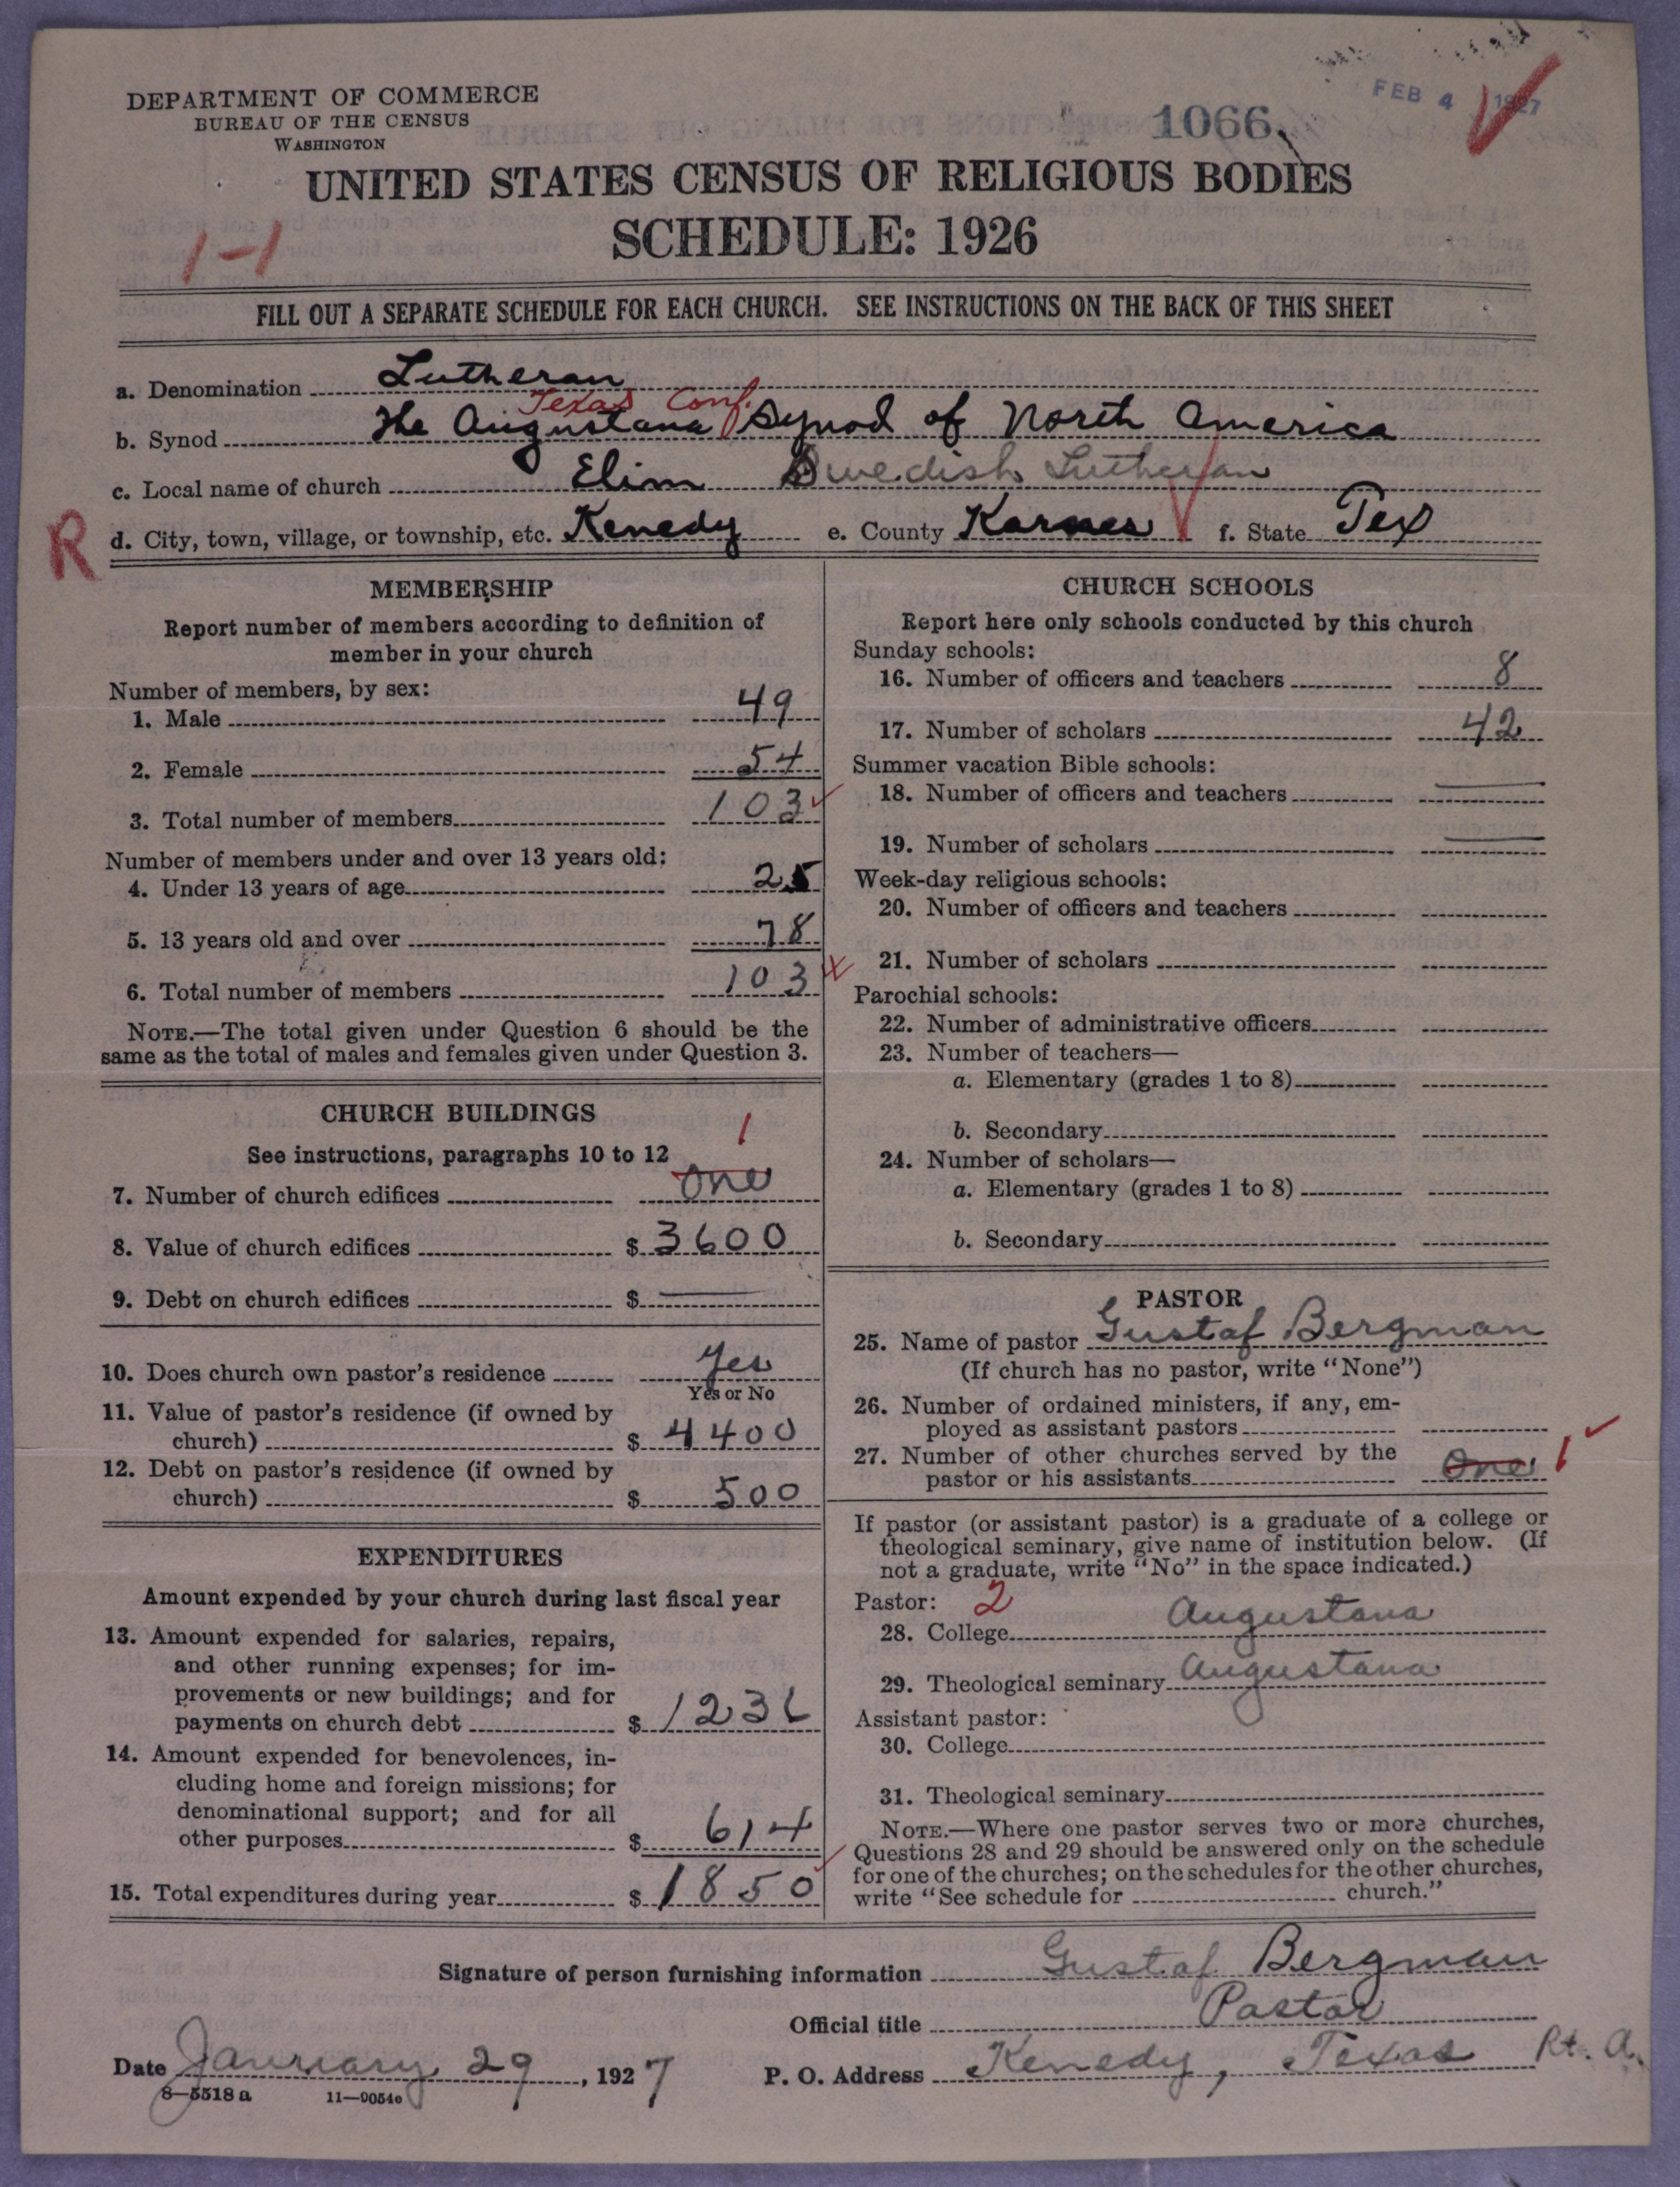 DEPARTMENT OF COMMERCE
BUREAU OF THE CENSUS
WASHINGTON
1066
FEB 4 1927
UNITED STATES CENSUS OF RELIGIOUS BODIES
SCHEDULE: 1926
1-1
FILL OUT A SEPARATE SCHEDULE FOR EACH CHURCH. SEE INSTRUCTIONS ON THE BACK OF THIS SHEET
a. Denomination Lutheran
Texas Conf.
b. Synod The Augustana Synod of North America
c. Local name of church Elim Swedish Lutheran
R
d. City, town, village, or township, etc. Kenedy e. County Karnes f. State Tex
MEMBERSHIP
Report number of members according to definition of
member in your church
Number of members, by sex:
1. Male 49
2. Female 54
3. Total number of members 103
Number of members under and over 13 years old:
4. Under 13 years of age 25
5. 13 years old and over 78
6. Total number of members 103
NOTE.—The total given under Question 6 should be the
same as the total of males and females given under Question 3.
CHURCH BUILDINGS
See instructions, paragraphs 10 to 12
1
7. Number of church edifices one
8. Value of church edifices $ 3600
9. Debt on church edifices $ —
10. Does church own pastor's residence Yes
Yes or No
11. Value of pastor's residence (if owned by
church) $ 4400
12. Debt on pastor's residence (if owned by
church) $ 500
EXPENDITURES
Amount expended by your church during last fiscal year
13. Amount expended for salaries, repairs,
and other running expenses; for im-
provements or new buildings; and for
payments on church debt $ 1236
14. Amount expended for benevolences, in-
cluding home and foreign missions; for
denominational support; and for all
other purposes $ 614
15. Total expenditures during year $ 1850
CHURCH SCHOOLS
Report here only schools conducted by this church
Sunday schools:
16. Number of officers and teachers 8
17. Number of scholars 42
Summer vacation Bible schools:
18. Number of officers and teachers —
19. Number of scholars —
Week-day religious schools:
20. Number of officers and teachers
21. Number of scholars
Parochial schools:
22. Number of administrative officers
23. Number of teachers—
a. Elementary (grades 1 to 8)
b. Secondary
24. Number of scholars—
a. Elementary (grades 1 to 8)
b. Secondary
PASTOR
25. Name of pastor Gustaf Bergman
(If church has no pastor, write "None")
26. Number of ordained ministers, if any, em-
ployed as assistant pastors
27. Number of other churches served by the
pastor or his assistants One 1
If pastor (or assistant pastor) is a graduate of a college or
theological seminary, give name of institution below. (If
not a graduate, write "No" in the space indicated.)
Pastor: 2
28. College Augustana
29. Theological seminary Augustana
Assistant pastor:
30. College
31. Theological seminary
NOTE.—Where one pastor serves two or more churches,
Questions 28 and 29 should be answered only on the schedule
for one of the churches; on the schedules for the other churches,
write "See schedule for church."
Signature of person furnishing information Gustaf Bergman
Official title Pastor
Date January 29, 1927 P. O. Address Kenedy, Texas Rt. A.
8—5518 a 11—9054c